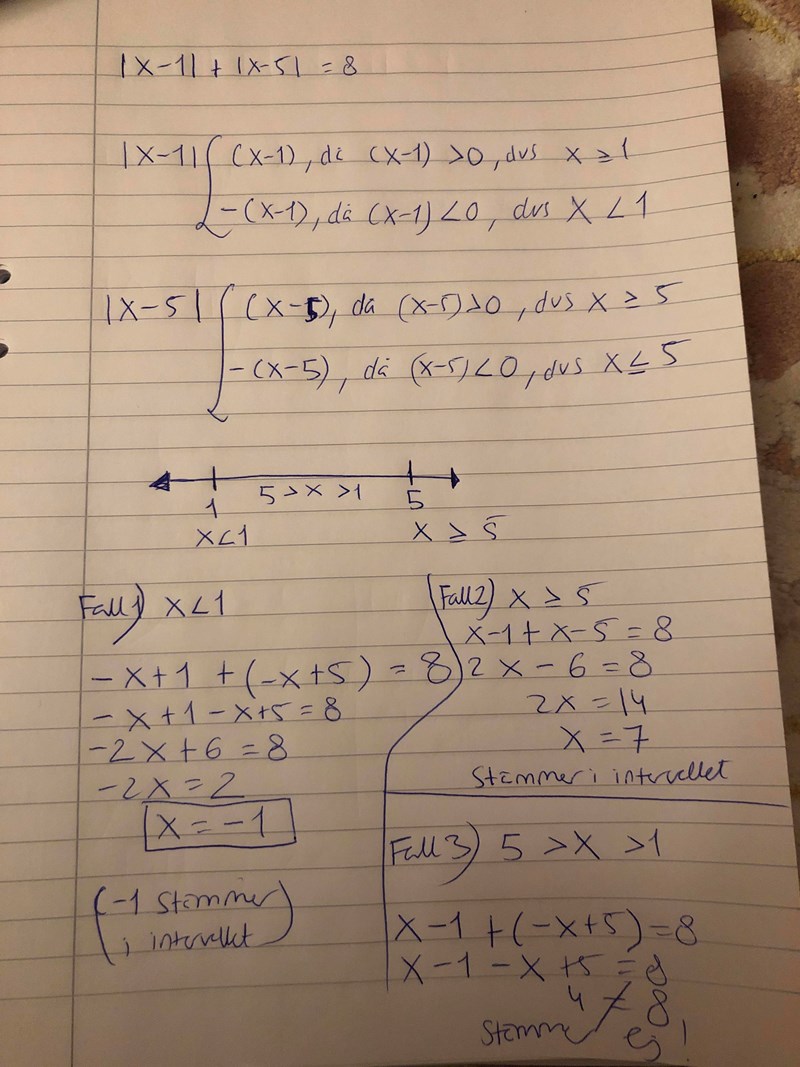 |x-1| + |x-5| = 8
|x-1| { (x-1), då (x-1) >0, dvs x ≥ 1
-(x-1), då (x-1) <0, dvs x < 1
|x-5| { (x-5), då (x-5)>0, dvs x ≥ 5
-(x-5), då (x-5)<0, dvs x ≤ 5
5 > x > 1
1 5
x<1 x ≥ 5
Fall 1) x < 1
-x+1 + (-x+5) = 8
-x+1-x+5=8
-2x+6 = 8
-2x = 2
x = -1
(-1 stämmer
i intervallet)
Fall 2) x ≥ 5
x-1+x-5 = 8
2x - 6 = 8
2x = 14
x = 7
Stämmer i intervallet
Fall 3) 5 > x > 1
x-1 + (-x+5) = 8
x-1-x+5 = 8
4 ≠ 8
Stämmer ej!